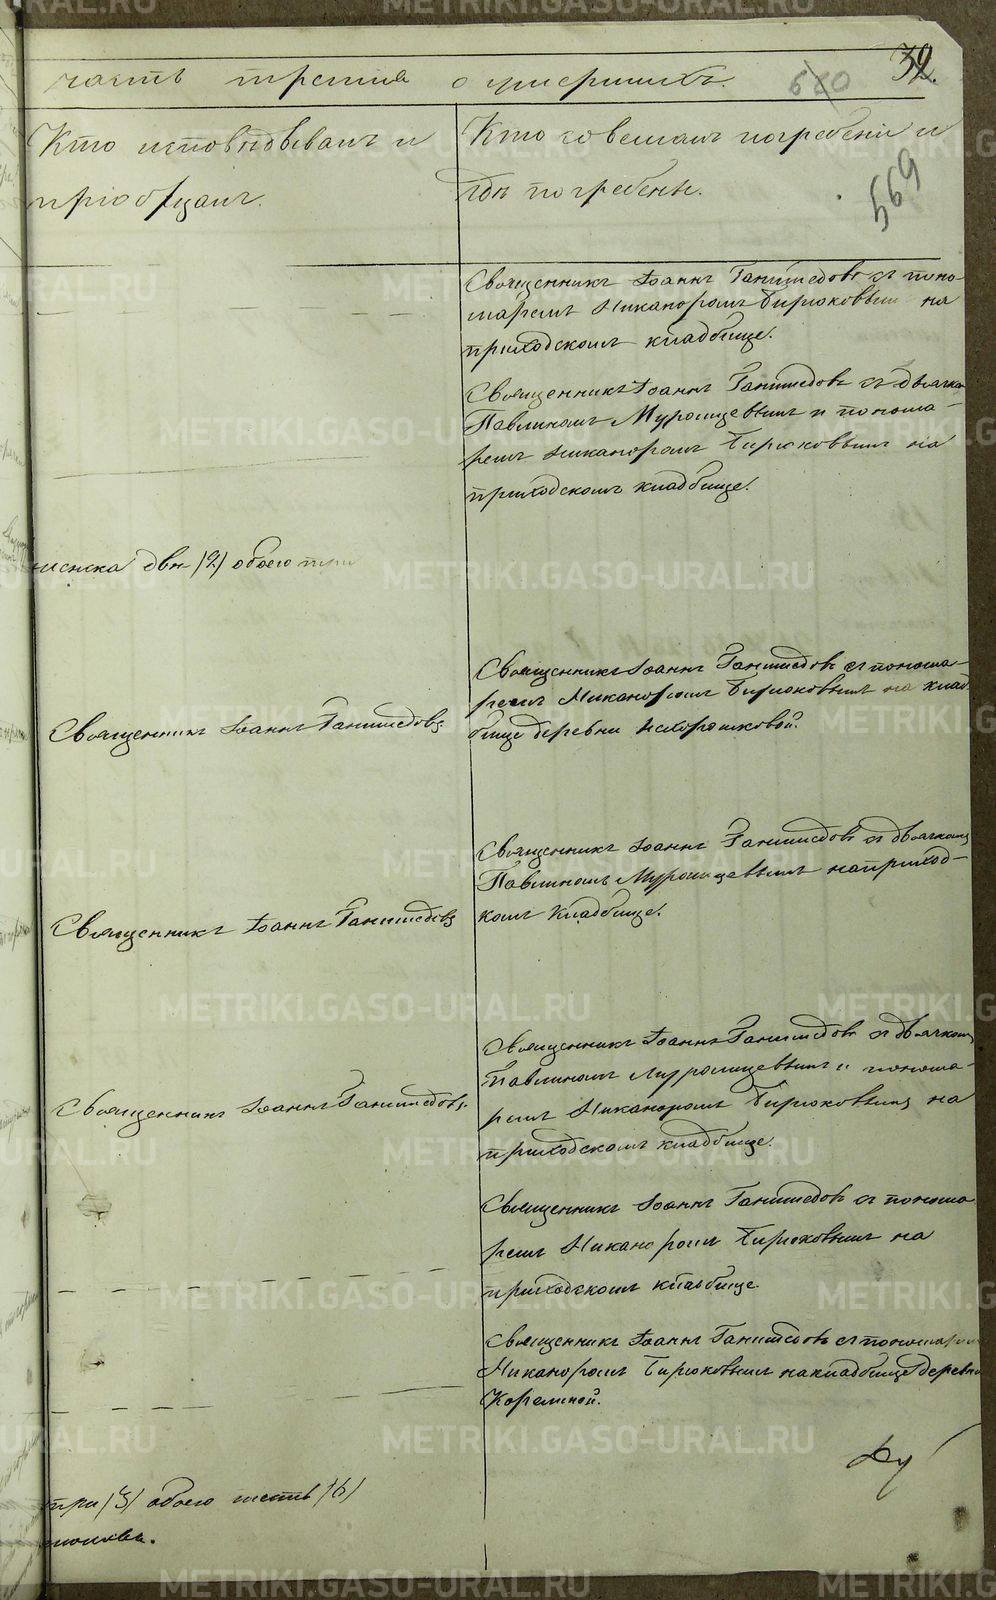 часть третiя о умершихъ.
620
32.
569
Кто исповѣдывалъ и
прiобщалъ.
Кто совершалъ погребенiе и
гдѣ погребены.
Священникъ Іоаннъ Ганимедовъ съ поно-
маремъ Никаноромъ Бирюковымъ на
приходскомъ кладбище.
Священникъ Іоаннъ Ганимедовъ съ дьячко
Павлиномъ Муромцевымъ и понома-
ремъ Никаноромъ Бирюковымъ на
приходскомъ кладбище.
женска двѣ /2/ обоего три
Священникъ Іоаннъ Ганимедовъ.
Священникъ Іоаннъ Ганимедовъ съ понома-
ремъ Никаноромъ Бирюковымъ на клад-
бище деревни
Священникъ Іоаннъ Ганимедовъ
Священникъ Іоаннъ Ганимедовъ съ дьячкомъ
Павлиномъ Муромцевымъ на приход-
комъ кладбище.
Священникъ Іоаннъ Ганимедовъ.
Священникъ Іоаннъ Ганимедовъ съ дьячкомъ
Павлиномъ Муромцевымъ и понома-
ремъ Никаноромъ Бирюковымъ на
приходскомъ кладбище.
Священникъ Іоаннъ Ганимедовъ съ понома
ремъ Никаноромъ Бирюковымъ на
приходскомъ кладбище.
Священникъ Іоаннъ Ганимедовъ съ пономаремъ
Никаноромъ Бирюковымъ на кладбище деревни
Корелиной.
три /3/ обоего шесть /6/
METRIKI.GASO-URAL.RU